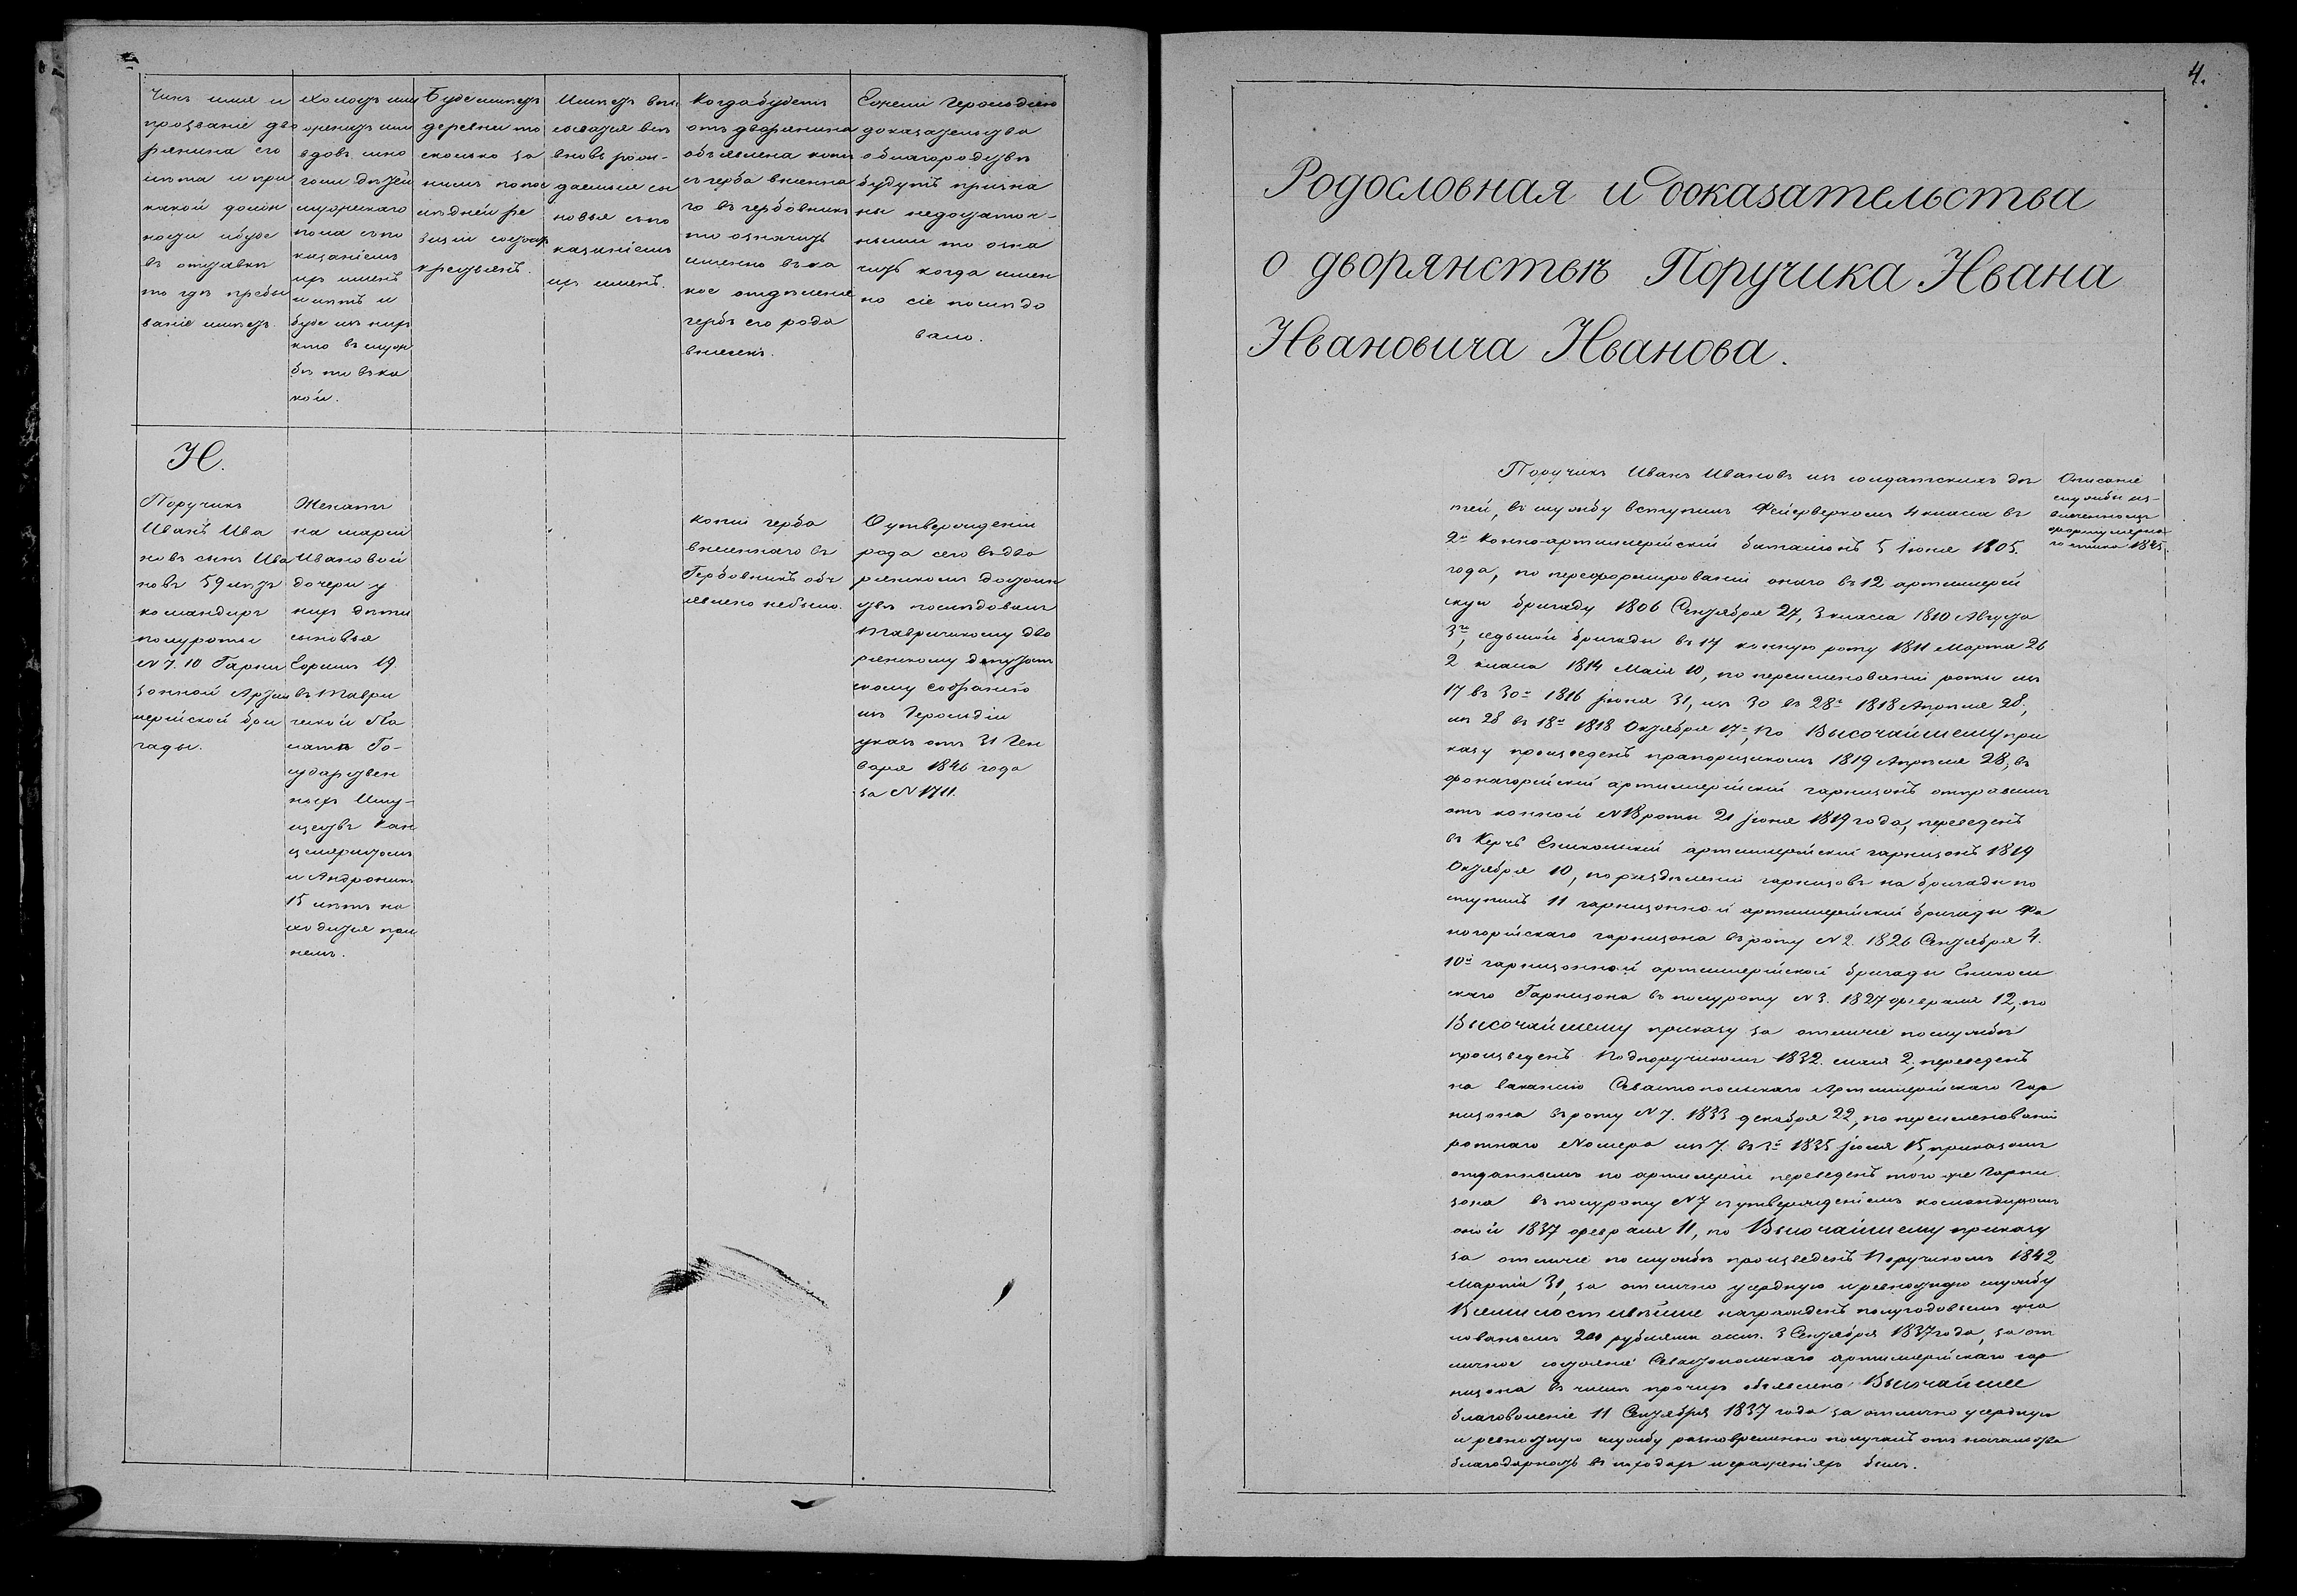 Чинъ имя и
прозваніе дво
рянина его
лѣта и при
какой долж
ности и буде
въ отставкѣ
то гдѣ пребы
ваніе имѣетъ.
Холостъ или
женатъ или
вдовъ, мно
голи дѣтей
мужескаго
пола съ по
казаніемъ
ихъ именъ
и лѣтъ и
буде изъ нихъ
кто въ служ
бѣ то въ ка
кой.
Буде имѣетъ
деревни то
сколько за
нимъ по пос
лѣдней ре
визіи состоитъ
крестьянъ.
Имѣетъ вно
соватся въ
вновь рож-
даемые сы
новья съ по
казаніемъ
ихъ именъ.
Когда будетъ
отъ дворянина
объявлена копія
съ герба внесенна
го въ гербовникъ
то означить
именно въ ка
кое отдѣленіе
гербъ его рода
внесенъ.
Еслиж Герольдіею
доказательства
о благородствѣ
будутъ призна
ны недостаточ-
ными то озна
чить когда имен
но сіе послѣдо
вало.
И.
Поручикъ
Иванъ Ива
новъ сынъ Ива
новъ 59 лѣтъ
командиръ
полуроты
№ 7. 10 Гарни
зонной Артил
лерійской бри
гады.
Женатъ
на Маріи
Ивановой
дочери у
нихъ дѣти
сыновья
Ефимъ 19
въ Таври
ческой Па
латѣ Го-
сударствен
ныхъ Иму-
ществъ Кан
целяристомъ
и Андроникъ
15 лѣтъ на
ходится при
немъ.
Копіи герба
внесеннаго въ
Гербовникъ объ
явлено небыло.
О утвержденіи
рода сего въ дво
рянскомъ достоин
ствѣ послѣдовалъ
Таврическому дво
рянскому депутат
скому собранію
изъ Герольдіи
указъ отъ 31 Ген
варя 1846 года
за № 1711.
4.
Родословная и доказательства
о дворянствѣ Поручика Ивана
Ивановича Иванова.
Описаніе
службы из-
влеченно изъ
формулярна-
го списка 1845.
Поручикъ Иванъ Ивановъ изъ солдатскихъ дѣ
тей, въ службу вступилъ Фейерверкомъ 4 класа въ
2й Конно-артиллерійскій баталіонъ 5 Іюня 1805.
года, по переформированіи онаго въ 12 артиллерій
скую бригаду 1806 Сентября 27, 3 класа 1810 Августа
3го, седьмой бригады въ 17 конную роту 1811 Марта 26
2 класа 1814 Маія 10, по переименованіи роты изъ
17 въ 30ю 1816 Іюня 31, изъ 30 въ 28ю 1818 Апрѣля 28,
изъ 28 въ 18ю 1818 Октября 17го, По Высочайшему при
казу произведенъ прапорщикомъ 1819 Апрѣля 28, въ
фонагорійскій артиллерійскій гарнизонъ отправленъ
отъ конной № 18 роты 21 Іюня 1819 года, переведенъ
въ Керчь Еникольскій артиллерійскій гарнизонъ 1819
Октября 10, по раздѣленіи гарнизовъ на бригады по
ступилъ 11 гарнизонной артиллерійской бригады Фа
ногорійскаго гарнизона въ роту № 2. 1826 Сентября 4.
10й гарнизонной артиллерійской бригады Ениколь
скаго Гарнизона въ полуроту № 3. 1827 февраля 12, по
Высочайшему приказу за отличіе по службѣ
произведенъ Подпоручикомъ 1832. маія 2, переведенъ
на ваканцію Севастопольскаго Артиллерійскаго Гар
низона въ роту № 7. 1833 декабря 22, по переименованіи
ротнаго Номера изъ 7. въ 3й 1835 Іюля 15, приказомъ
отданнымъ по артилеріи переведенъ того же Гарни
зона въ полуроту № 7 съ утвержденіемъ командиромъ
оной 1837 февраля 11, по Высочайшему приказу
за отличіе по службѣ произведенъ Поручикомъ 1842
Марта 31, за отлично усердную и ревностную службу
Всемилостивѣйше награжденъ полугодовымъ жа
лованьемъ 200 рублями асиг. 3 Сентября 1837 года, за от
личное состояніе Севастопольскаго артиллерійскаго гар
низона въ числѣ прочихъ объявлено Высочайшее
благоволеніе 11 Сентября 1837 года за отлично усердную
и ревностную службу разновременно получалъ отъ начальства
благодарность въ походахъ и сраженіяхъ былъ.